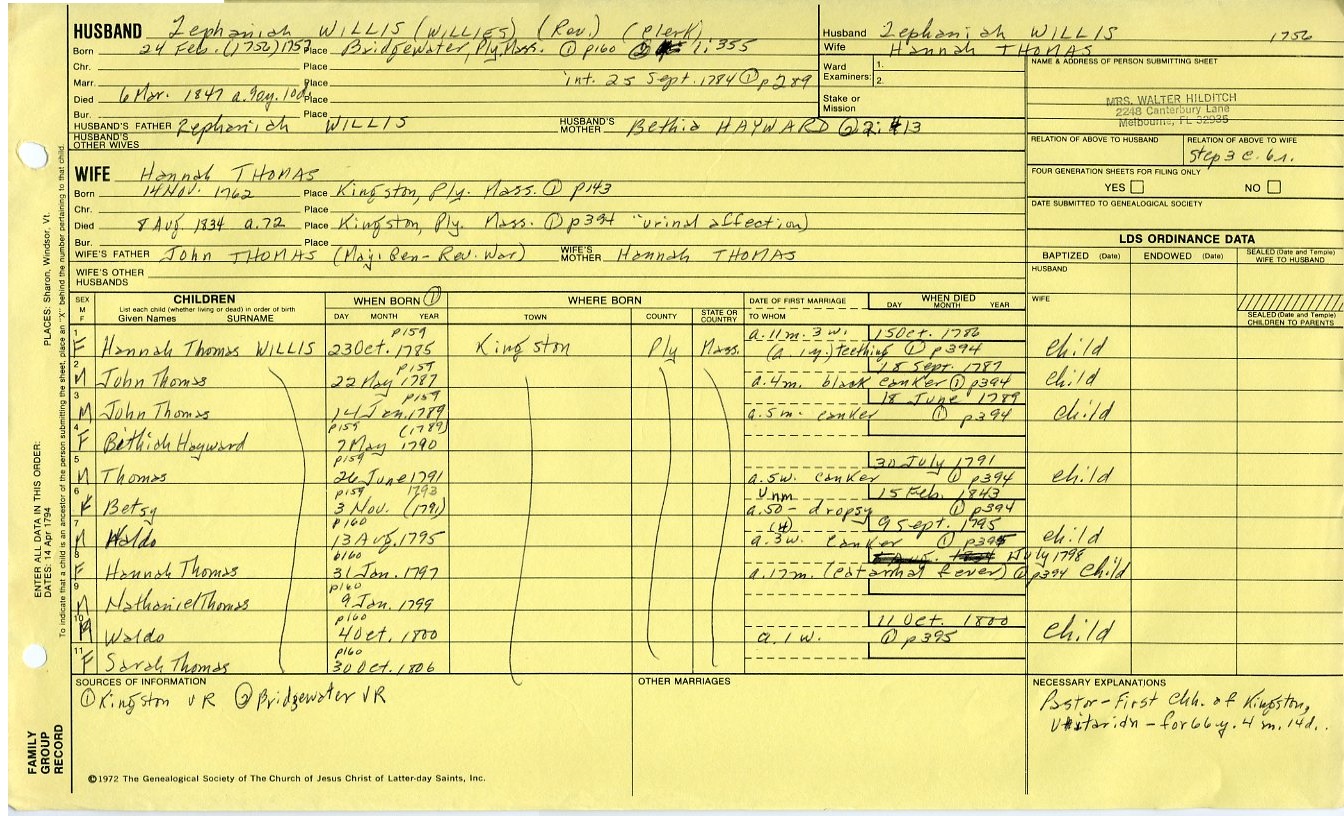 HUSBAND Zephaniah WILLIS (WILLIES) (Rev.) (clerk)
Born 24 Feb. (1756) 1757 Place Bridgewater, Ply. Mass. ① p160 ② 1:355
Chr. Place
Marr. Place int. 25 Sept. 1784 ① p289
Died 6 Mar. 1847 a. 90y. 10d. Place
Bur. Place
HUSBAND'S FATHER Zephaniah WILLIS HUSBAND'S MOTHER Bethia HAYWARD ②
HUSBAND'S OTHER WIVES
Husband Zephaniah WILLIS 1756
Wife Hannah THOMAS
Ward Examiners: 1.
2.
Stake or Mission
NAME & ADDRESS OF PERSON SUBMITTING SHEET
MRS. WALTER HILDITCH
2248 Canterbury Lane
Melbourne, FL 32935
RELATION OF ABOVE TO HUSBAND RELATION OF ABOVE TO WIFE
Step 3 c. 6r.
FOUR GENERATION SHEETS FOR FILING ONLY
YES NO
DATE SUBMITTED TO GENEALOGICAL SOCIETY
WIFE Hannah THOMAS
Born 14 Nov. 1762 Place Kingston, Ply. Mass. ① p143
Chr. Place
Died 8 Aug. 1834 a. 72 Place Kingston, Ply. Mass. ① p394 "urinal affection)
Bur. Place
WIFE'S FATHER John THOMAS (Maj. Gen - Rev. War) WIFE'S MOTHER Hannah THOMAS
WIFE'S OTHER HUSBANDS
LDS ORDINANCE DATA
BAPTIZED (Date) ENDOWED (Date) SEALED (Date and Temple) WIFE TO HUSBAND
HUSBAND
WIFE
SEALED (Date and Temple) CHILDREN TO PARENTS
SEX M F CHILDREN WHEN BORN ① WHERE BORN DATE OF FIRST MARRIAGE WHEN DIED
List each child (whether living or dead) in order of birth DAY MONTH YEAR
Given Names SURNAME DAY MONTH YEAR TOWN COUNTY STATE OR COUNTRY TO WHOM
1 p159 a. 11m. 3w. 15 Oct. 1786
F Hannah Thomas WILLIS 23 Oct. 1785 Kingston Ply Mass. (a 1y.) teething ① p394 child
2 p159 18 Sept. 1787
M John Thomas 22 May 1787 a. 4m. black canker ① p394 child
3 p159 18 June 1789
M John Thomas 14 Jan. 1789 a. 5m. canker ① p394 child
4 p159 (1789)
F Bethiah Hayward 7 May 1790
5 p159 30 July 1791
M Thomas 26 June 1791 a. 5w. canker ① p394 child
6 p159 1793 Unm 15 Feb. 1843
F Betsy 3 Nov. (1791) a. 50 - dropsy ① p394
7 p160 (4) 9 Sept. 1795
M Waldo 13 Aug. 1795 a. 3w. canker ① p395 child
8 p160 July 1798
F Hannah Thomas 31 Jan. 1797 a. 17m. (catarrhal fever) ① p394 child
9 p160
M Nathaniel Thomas 9 Jan. 1799
10 p160 11 Oct. 1800
M Waldo 4 Oct. 1800 a. 1w. ① p395 child
11 p160
F Sarah Thomas 30 Oct. 1806
SOURCES OF INFORMATION
① Kingston VR ② Bridgewater VR
OTHER MARRIAGES
NECESSARY EXPLANATIONS
Pastor - First Chh. of Kingston,
Unitarian - for 66y. 4m. 14d.
©1972 The Genealogical Society of The Church of Jesus Christ of Latter-day Saints, Inc.
FAMILY GROUP RECORD
ENTER ALL DATA IN THIS ORDER:
DATES: 14 Apr 1794
PLACES: Sharon, Windsor, Vt.
To indicate that a child is an ancestor of the person submitting the sheet, place an "X" behind the number pertaining to that child.